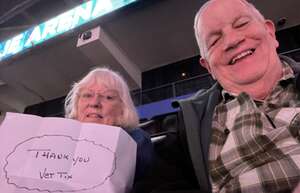 ARENA
THANK YOU
VET TIX